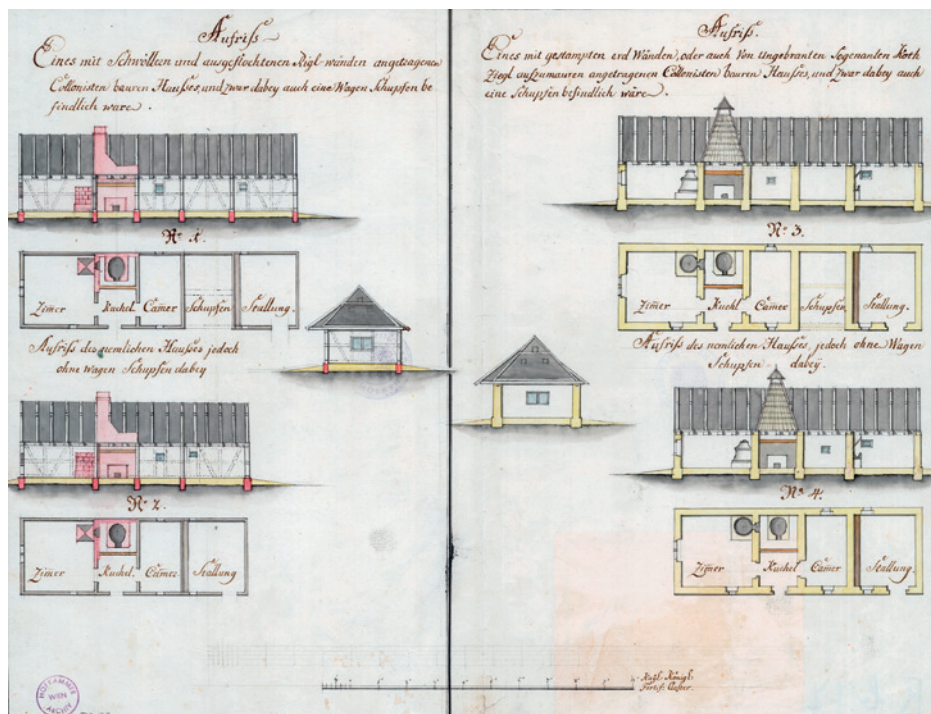 Aufriß
Eines mit Schwöllern und ausgeflochtenen Rigl wänden angetragenen
Collonisten bauren Haußes, und zwar dabey auch eine Wagen Schupfen be
findlich ware.
No. 1.
Zimer Kuchel Camer Schupfen Stallung.
Aufriß des nemlichen Haußes jedoch
ohne Wagen Schupfen dabey
No. 2.
Zimer Kuchel. Camer Stallung
Aufriß.
Eines mit gestampten erd Wänden, oder auch Von Ungebranten Sogenanten Koth
Ziegl aufzumauren angetragenen Collonisten bauren Haußes, und zwar dabey auch
eine Schupfen befindlich wäre.
No. 3.
Zimer Kuchl Camer Schupfen Stallung.
Aufriß des nemlichen Haußes, jedoch ohne Wagen
Schupfen dabey.
No. 4.
Zimer Kuchel Camer Stallung.
Kayl. Königl.
Fortif: Claffter.
HOFKAMMER
WIEN
ARCHIV